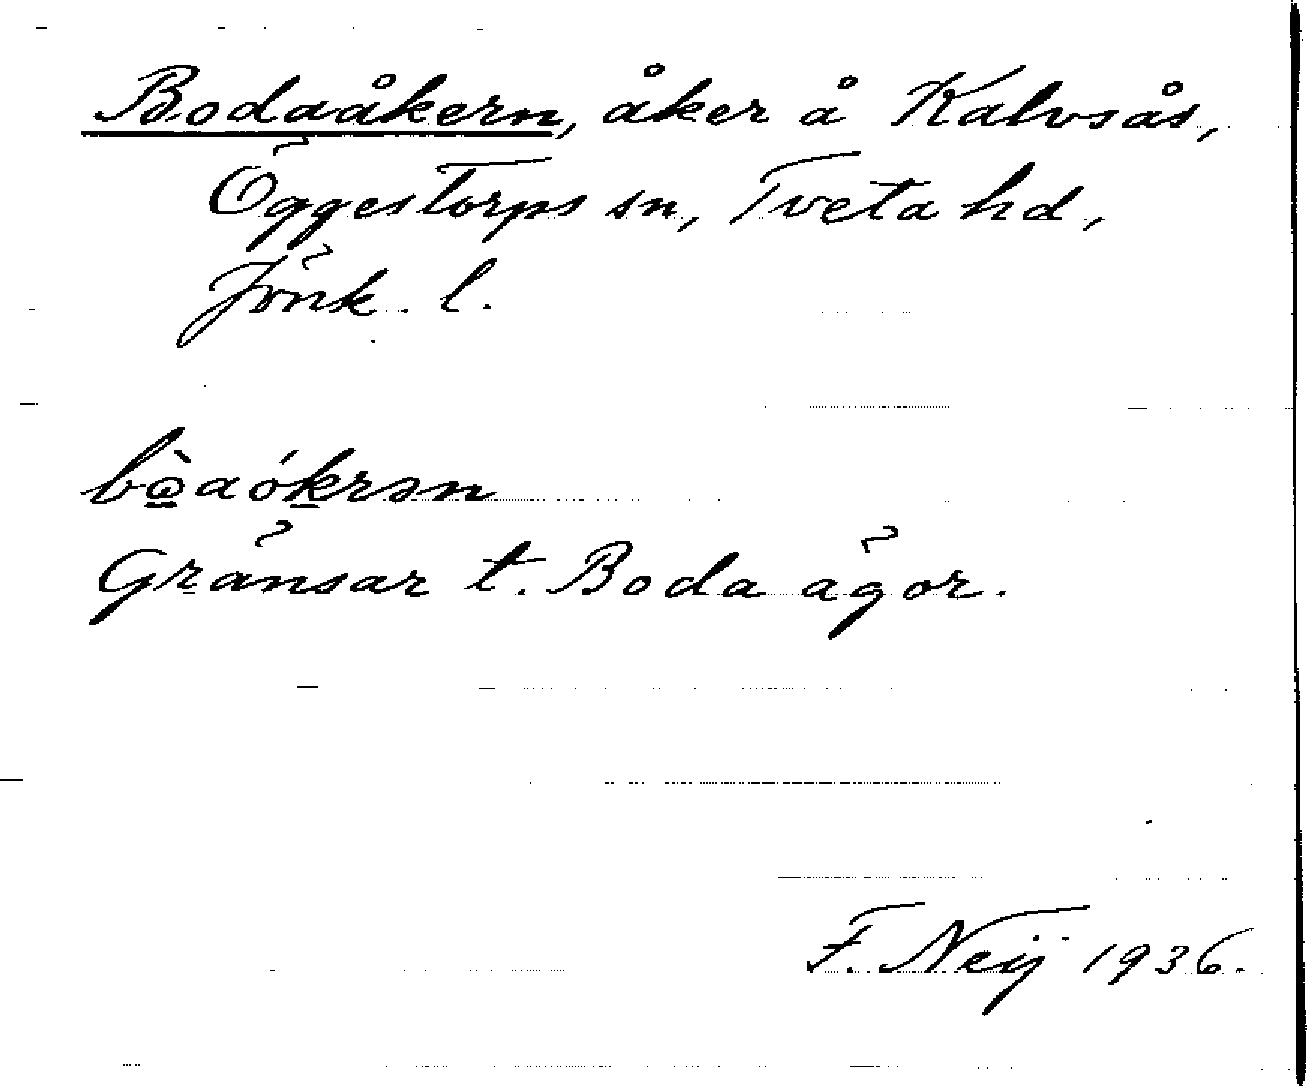 Bodaåkern, åker å Kalvsås,
Öggestorps sn, Tveta hd,
Jönk. l.
bò̱aókrən
Gränsar t. Boda ägor.
F. Neij 1936.